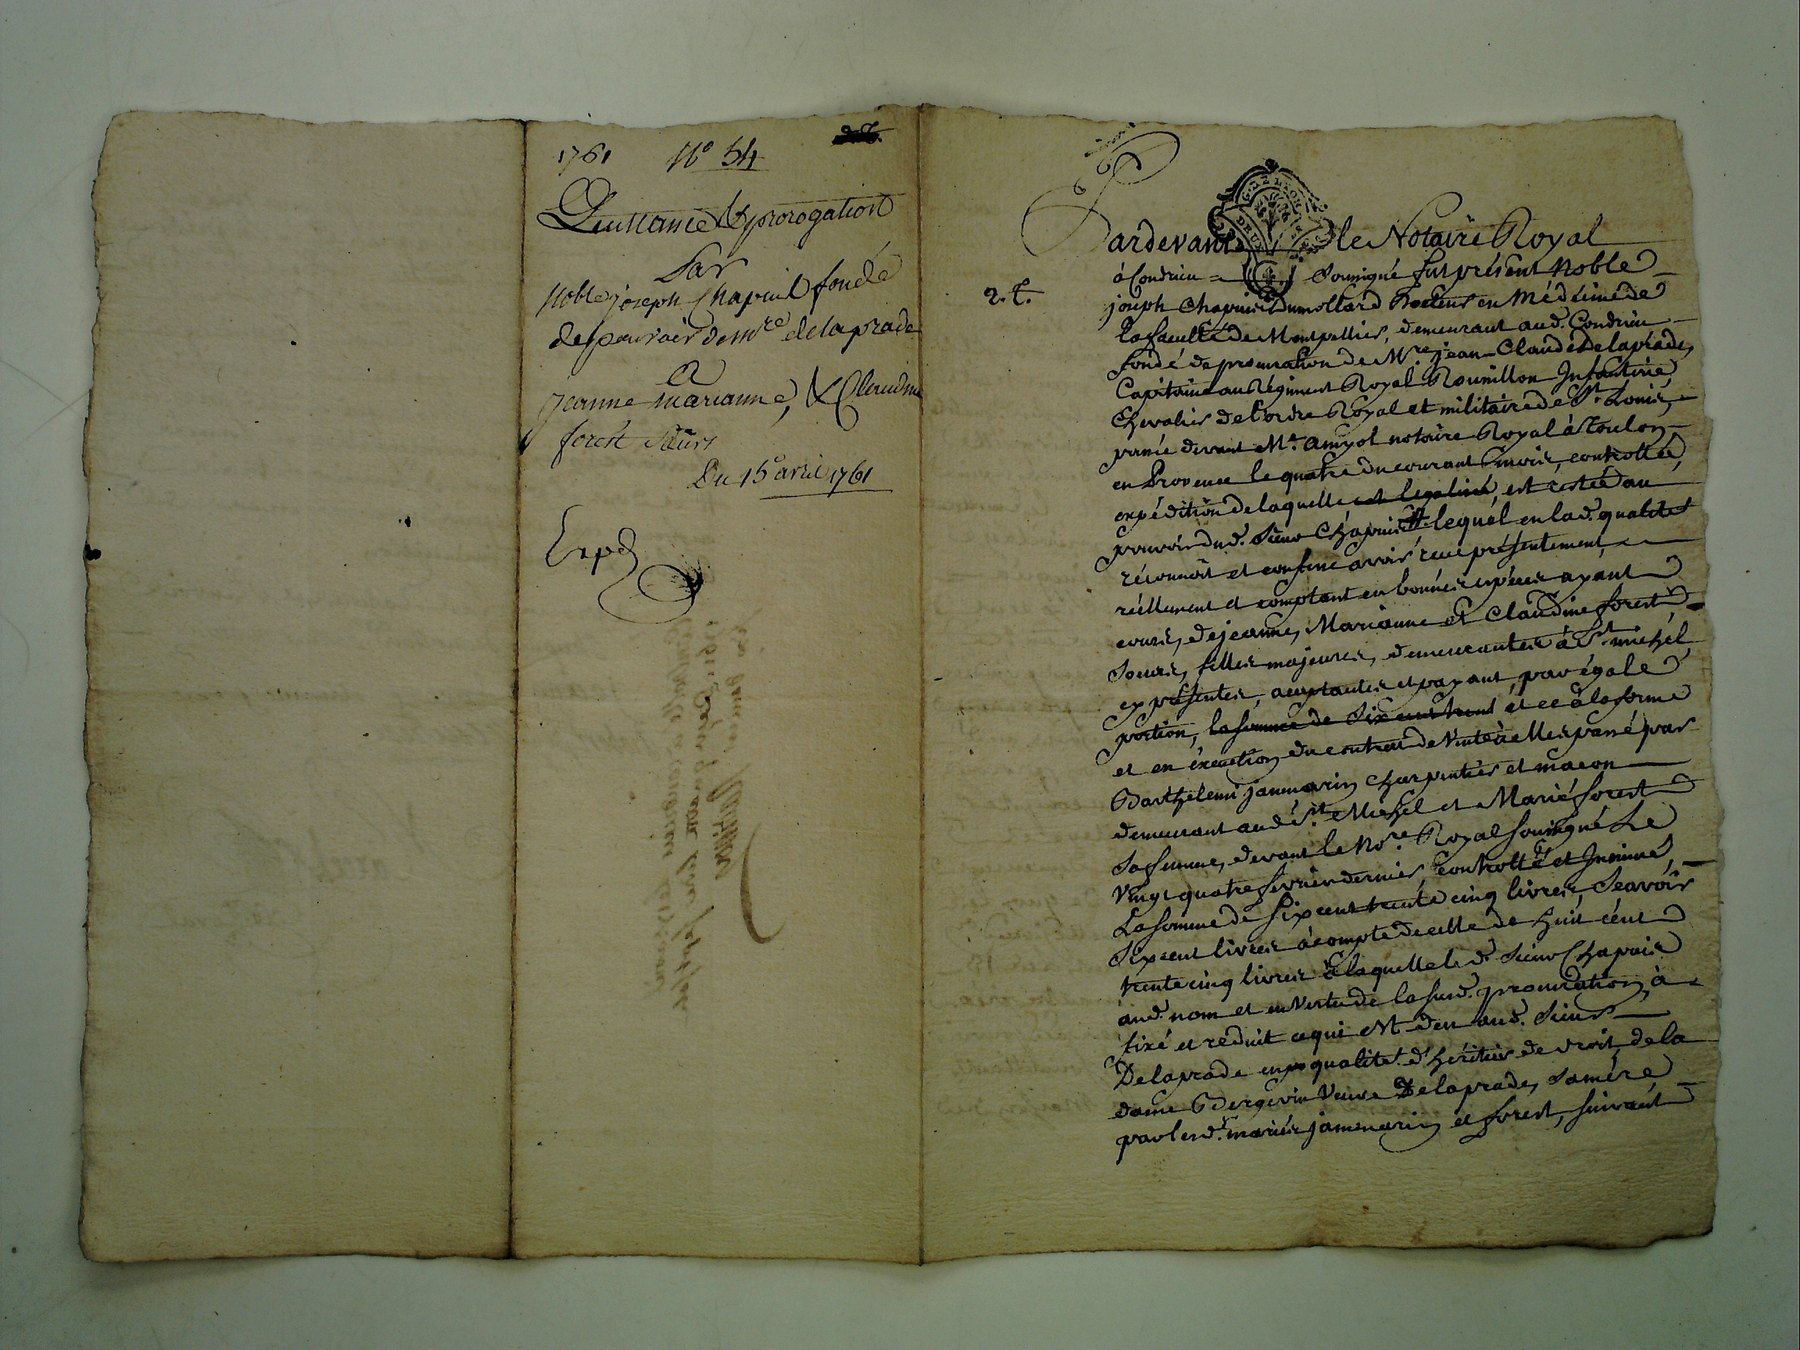 1761 N° 54
Quittance & prorogation
Par
Noble joseph Chapuis fondé
de pouvoir de Mre delaprade
A
jeanne marianne, & Claudine
forest sœurs
Du 15e avril 1761
Expd
2. T.
GNALITE LYON
Pardevant le Notaire Royal
à Condrieu = soussigné fut présent Noble
joseph Chapuis Dumollard Docteur en Médecine de
la faculté de Montpellier, demeurant aud. Condrieu
fondé de procuration de Mre jean-Claude Delaprade,
Capitaine au Régiment Royal Roussillon Infanterie
Chevalier de l'ordre Royal et militaire de St. Louis,
passée devant Me. amyot notaire Royal à Toulon
en Provence le quatre du courant mois, controllée,
expédition de laquelle est restée au
pouvoir dud. Sieur Chapuis lequel en lad. qualité
reconnoit et confesse avoir reçu présentement,
réellement et comptant en bonnes espèces ayant
cours, de jeanne, Marianne et Claudine forest
soeurs, filles majeures, demeurantes à St. michel,
cy présentes, acceptantes et payant, par égale
portion, la somme de six cent trente et ce à la forme
et en éxécution du contrat de vente à elles passé par
Barthelemi janmarin charpentier et maçon
demeurant aud. St. Michel et Marie forest
sa femme, devant le Nore. Royal soussigné Le
Vingt quatre fevrier dernier, controllé et Insinué,
La somme de six cent trente cinq livres, Sçavoir
six cent livres à compte de celle de huit cent
trente cinq livres à laquelle led. Sieur Chapuis
aud. nom et en vertu de la sud. procuration, à
fixé et réduit ce qui est deu aud. Sieur
Delaprade en qualité d'héritier de droit de la
dame Bergeron Veuve Delaprade, sa mére
par lesd. mariés janmarin et forest, suivant